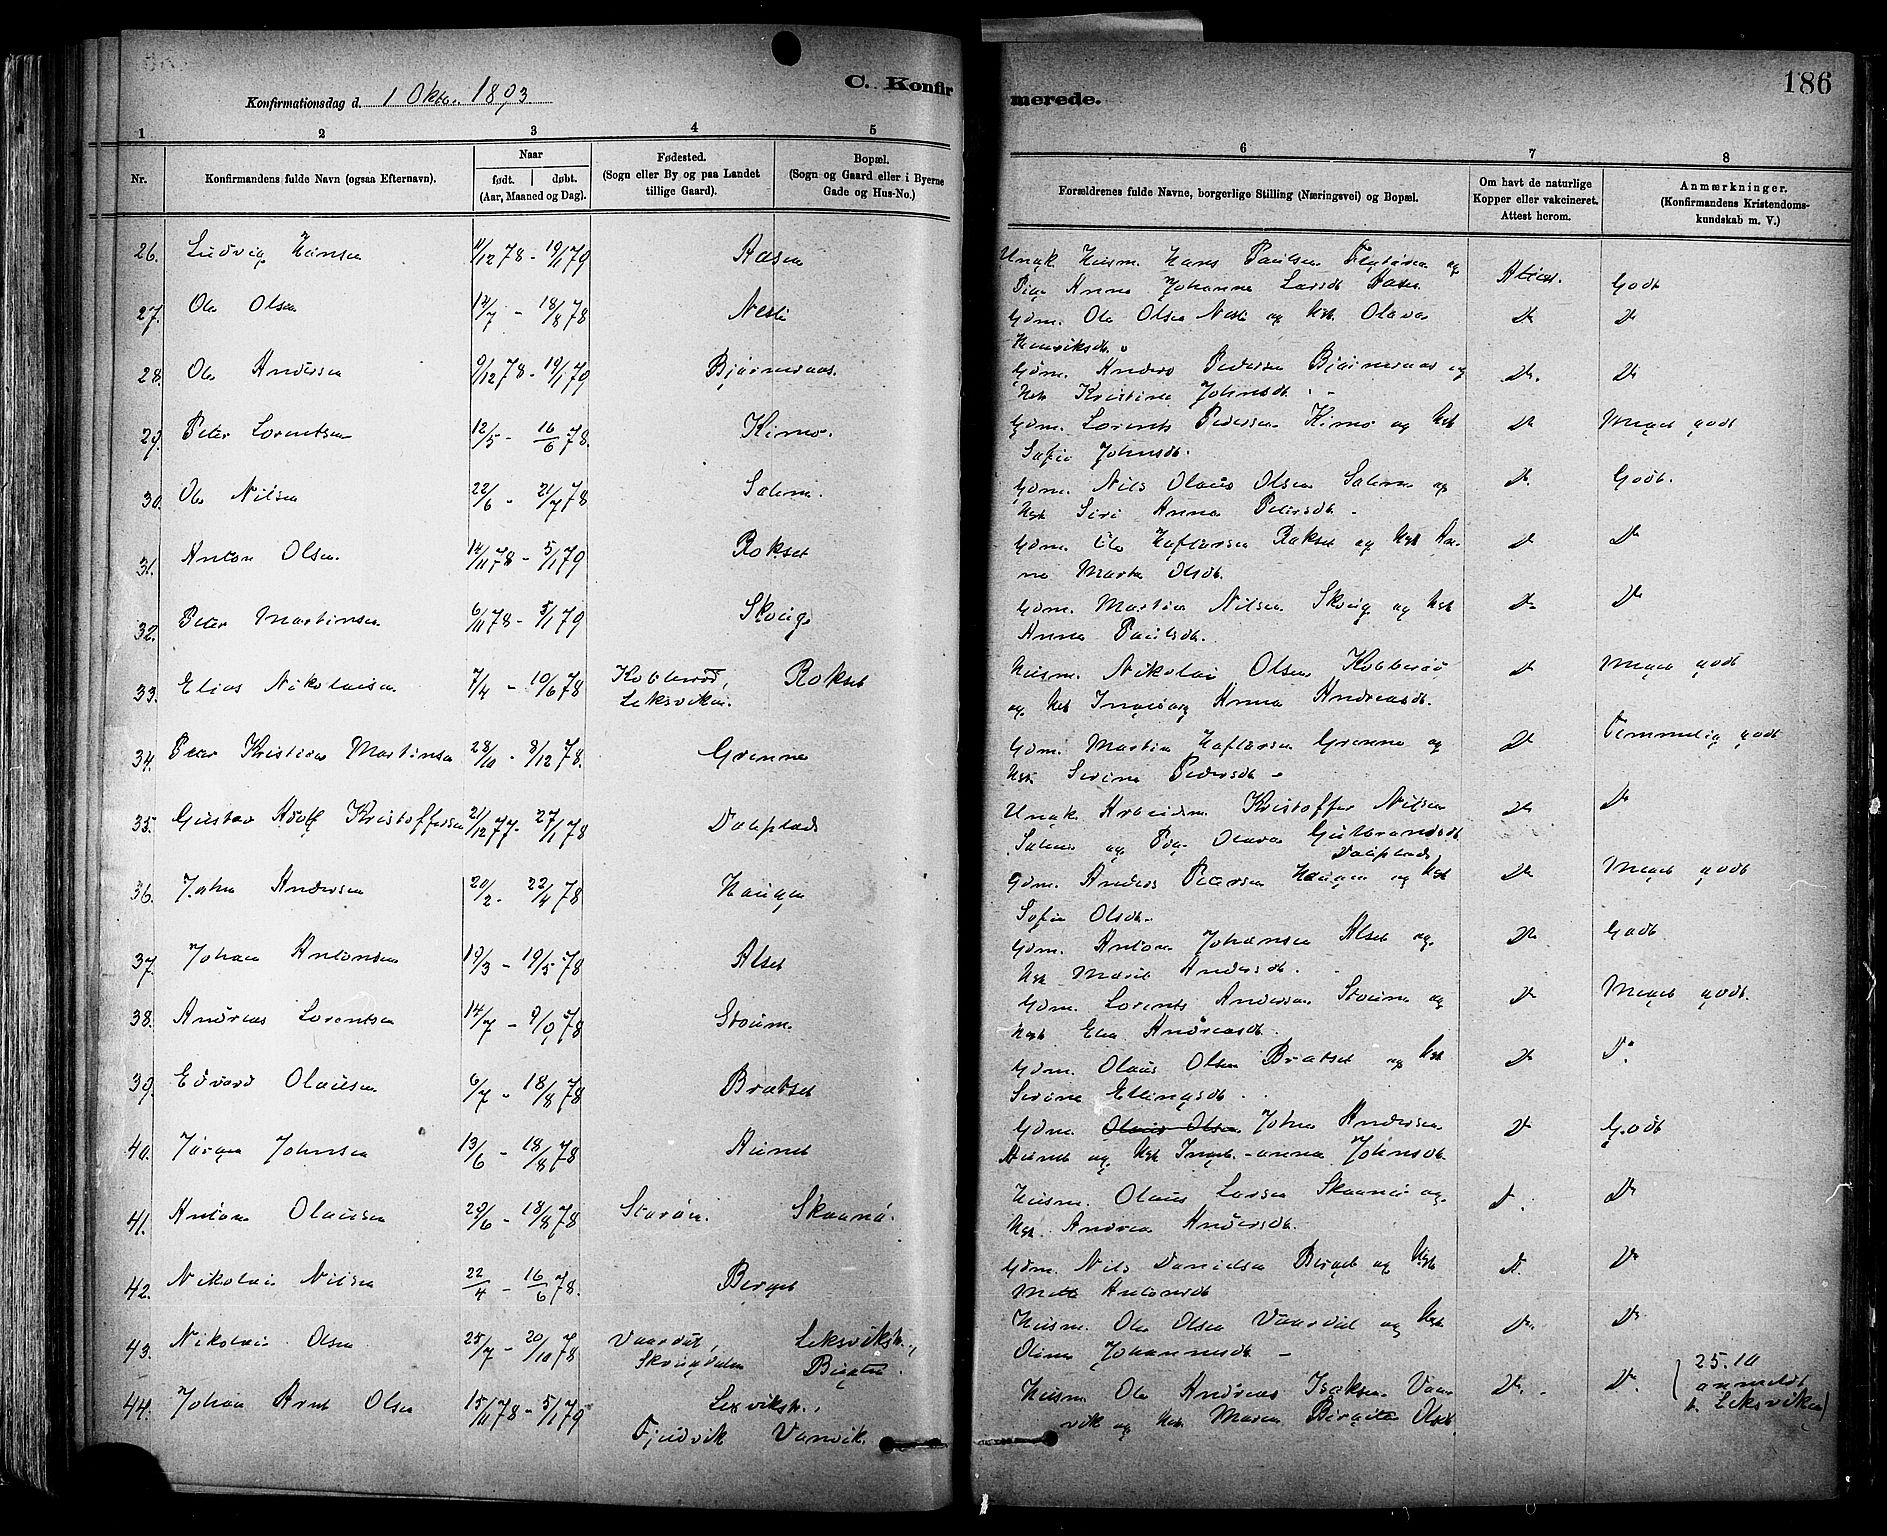 186
Konfirmationsdag d. 1 Oktr. 1893
C. Konfirmerede.
1 2 3 4 5 6 7 8
Nr. Konfirmandens fulde Navn (ogsaa Efternavn). Naar født. døbt. (Aar, Maaned og Dag). Fødested. (Sogn eller By og paa Landet tillige Gaard). Bopæl. (Sogn og Gaard eller i Byerne Gade og Hus-No.) Forældrenes fulde Navne, borgerlige Stilling (Næringsvei) og Bopæl. Om havt de naturlige Kopper eller vakcineret. Attest herom. Anmærkninger. (Konfirmandens Kristendomskundskab m. V.)
26. Ludvig Hansen 11/12 78 - 19/1 79 Aasen Ungk. Husm. Hans Paulsen og
Pige Anna Johanna Larsdt. Aasen Attest. Godt
27. Ole Olsen 12/7 - 18/8 78 Nesti Gdm. Ole Olsen Nesti og Hst. Olava
Henriksdt. Do Do
28. Ole Andersen 9/12 78 - 19/1 79 Bjørneraas Gdm. Anders Pedersen Bjørneraas og
Hst. Kristina Johnsdt. Do. Do
29. Peter Lorentsen 12/5 - 16/6 78. Kimo. Gdm. Lorents Pedersen Kimo og Hst
Sofie Johnsdt. Do Meget godt
30. Ole Nilsen 22/6 - 21/7 78 Salem. Gdm. Nils Olaus Olsen Salem og
Hst Siri Anna Petersdt. Do Godt.
31. Anton Olsen. 14/11 78 - 5/1 79 Rokset Gdm. Ole Haftorsen Rokset og Hst An-
na Marta Olsdt. Do Do
32. Peter Martinsen 6/11 78 - 5/1 79 Skouge Gdm. Martin Nilsen Skoug og Hst
Anna Paulsdt. Do Do
33. Elias Nikolaisen 7/4 - 10/6 78 Kobberød, Leksviken. Rokset Husm. Nikolai Olsen Kobberød
og Hst Ingeborg Anna Andreasdt. Do Meget godt
34. Peter Kristian Martinsen 28/10 - 8/12 78. Grenne Gdm. Martin Haftorsen Grenne og
Hst. Serina Pedersdt. Do Temmelig godt
35. Gustav Adolf Kristoffersen 21/12 77 - 27/1 78 Dalplads Ungk. Arbeidsm. Kristoffer Nilsen
Salem og Pige Olava Gulbrandsdt. Dalplads Do Do
36. John Andersen 20/2 - 22/4 78 Haugen Gdm. Anders Petersen Haugen og Hst
Sofie Olsdt. Do Meget godt
37. Johan Antonsen 19/3 - 19/5 78 Alset Gdm. Anton Johansen Alset og
Hst Marit Andersdt. Do Godt
38. Andreas Lorentsen 14/7 - 9/9 78 Stoum Gdm. Lorents Andersen Stoum og
Hst. Elen Andreasdt. Do Meget godt.
39. Edvard Olausen 6/7 - 18/8 78 Bratset Gdm. Olaus Olsen Bratset og Hst
Serina Ellingsdt. Do Do
40. Jørgen Johnsen 13/6 - 18/8 78 Aunet Gdm. Olaus Olsen John Andersen
Aunet og Hst Ingeb. anna Johnsdt. Do Godt
41. Anton Olausen 29/6 - 18/8 78 Storøen. Skaanø. Husm. Olaus Larsen Skaanø og
Hst. Andrea Andersdt. Do. Do
42. Nikolai Nilsen 22/4 - 16/6 78. Berget Gdm. Nils Danielsen Berget og Hst
Mette Antonsdt. Do. Do
43. Nikolai Olsen 25/7 - 20/10 78 Vaardal, Skrugdalen Leksvikst., Husm. Ole Olsen Vaardal og Hst
Olina Johannesdt. Do. Do
44. Johan Arnt Olsen 15/11 78 - 5/1 79 Lexvikst., Fjudvik Vanvik. Husm. Ole Andreas Isaksen Van-
vik og Hst. Maren Birgitte Olsdt. Do. Do. (25.10
anmeldt
t. Leksviken)